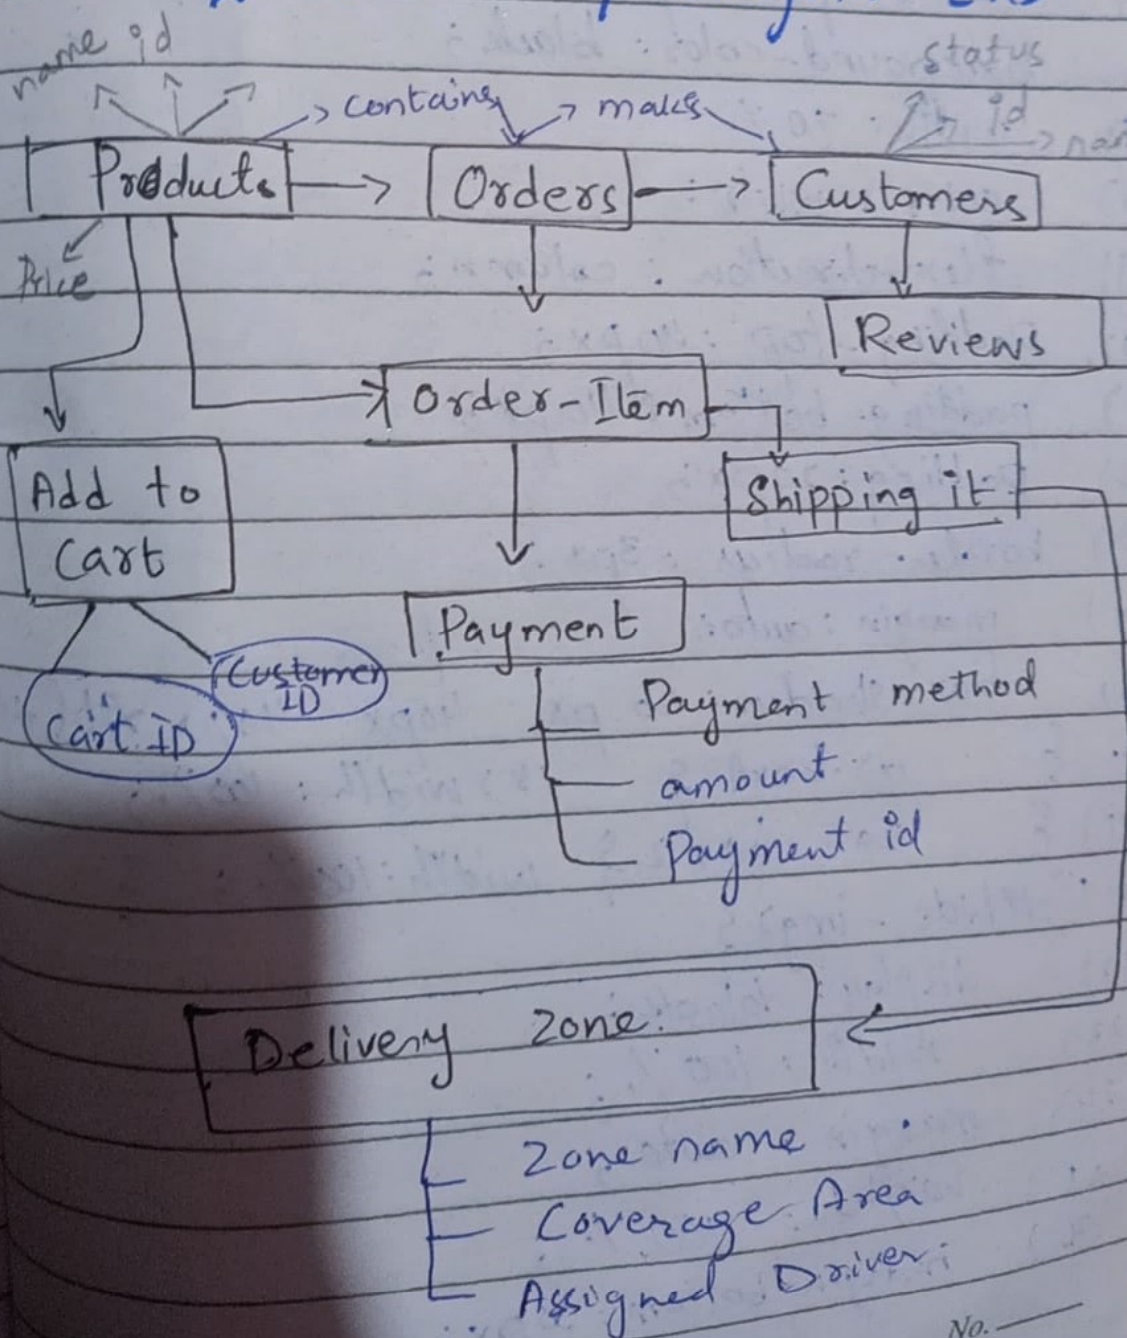 name id
status
contains
makes
id
Products
Orders
Customers
Price
Reviews
Order-Item
Add to
Cart
Shipping it
Payment
Customer
ID
Cart ID
Payment method
amount
Payment id
Delivery zone.
Zone name
Coverage Area
Assigned Driver
No.